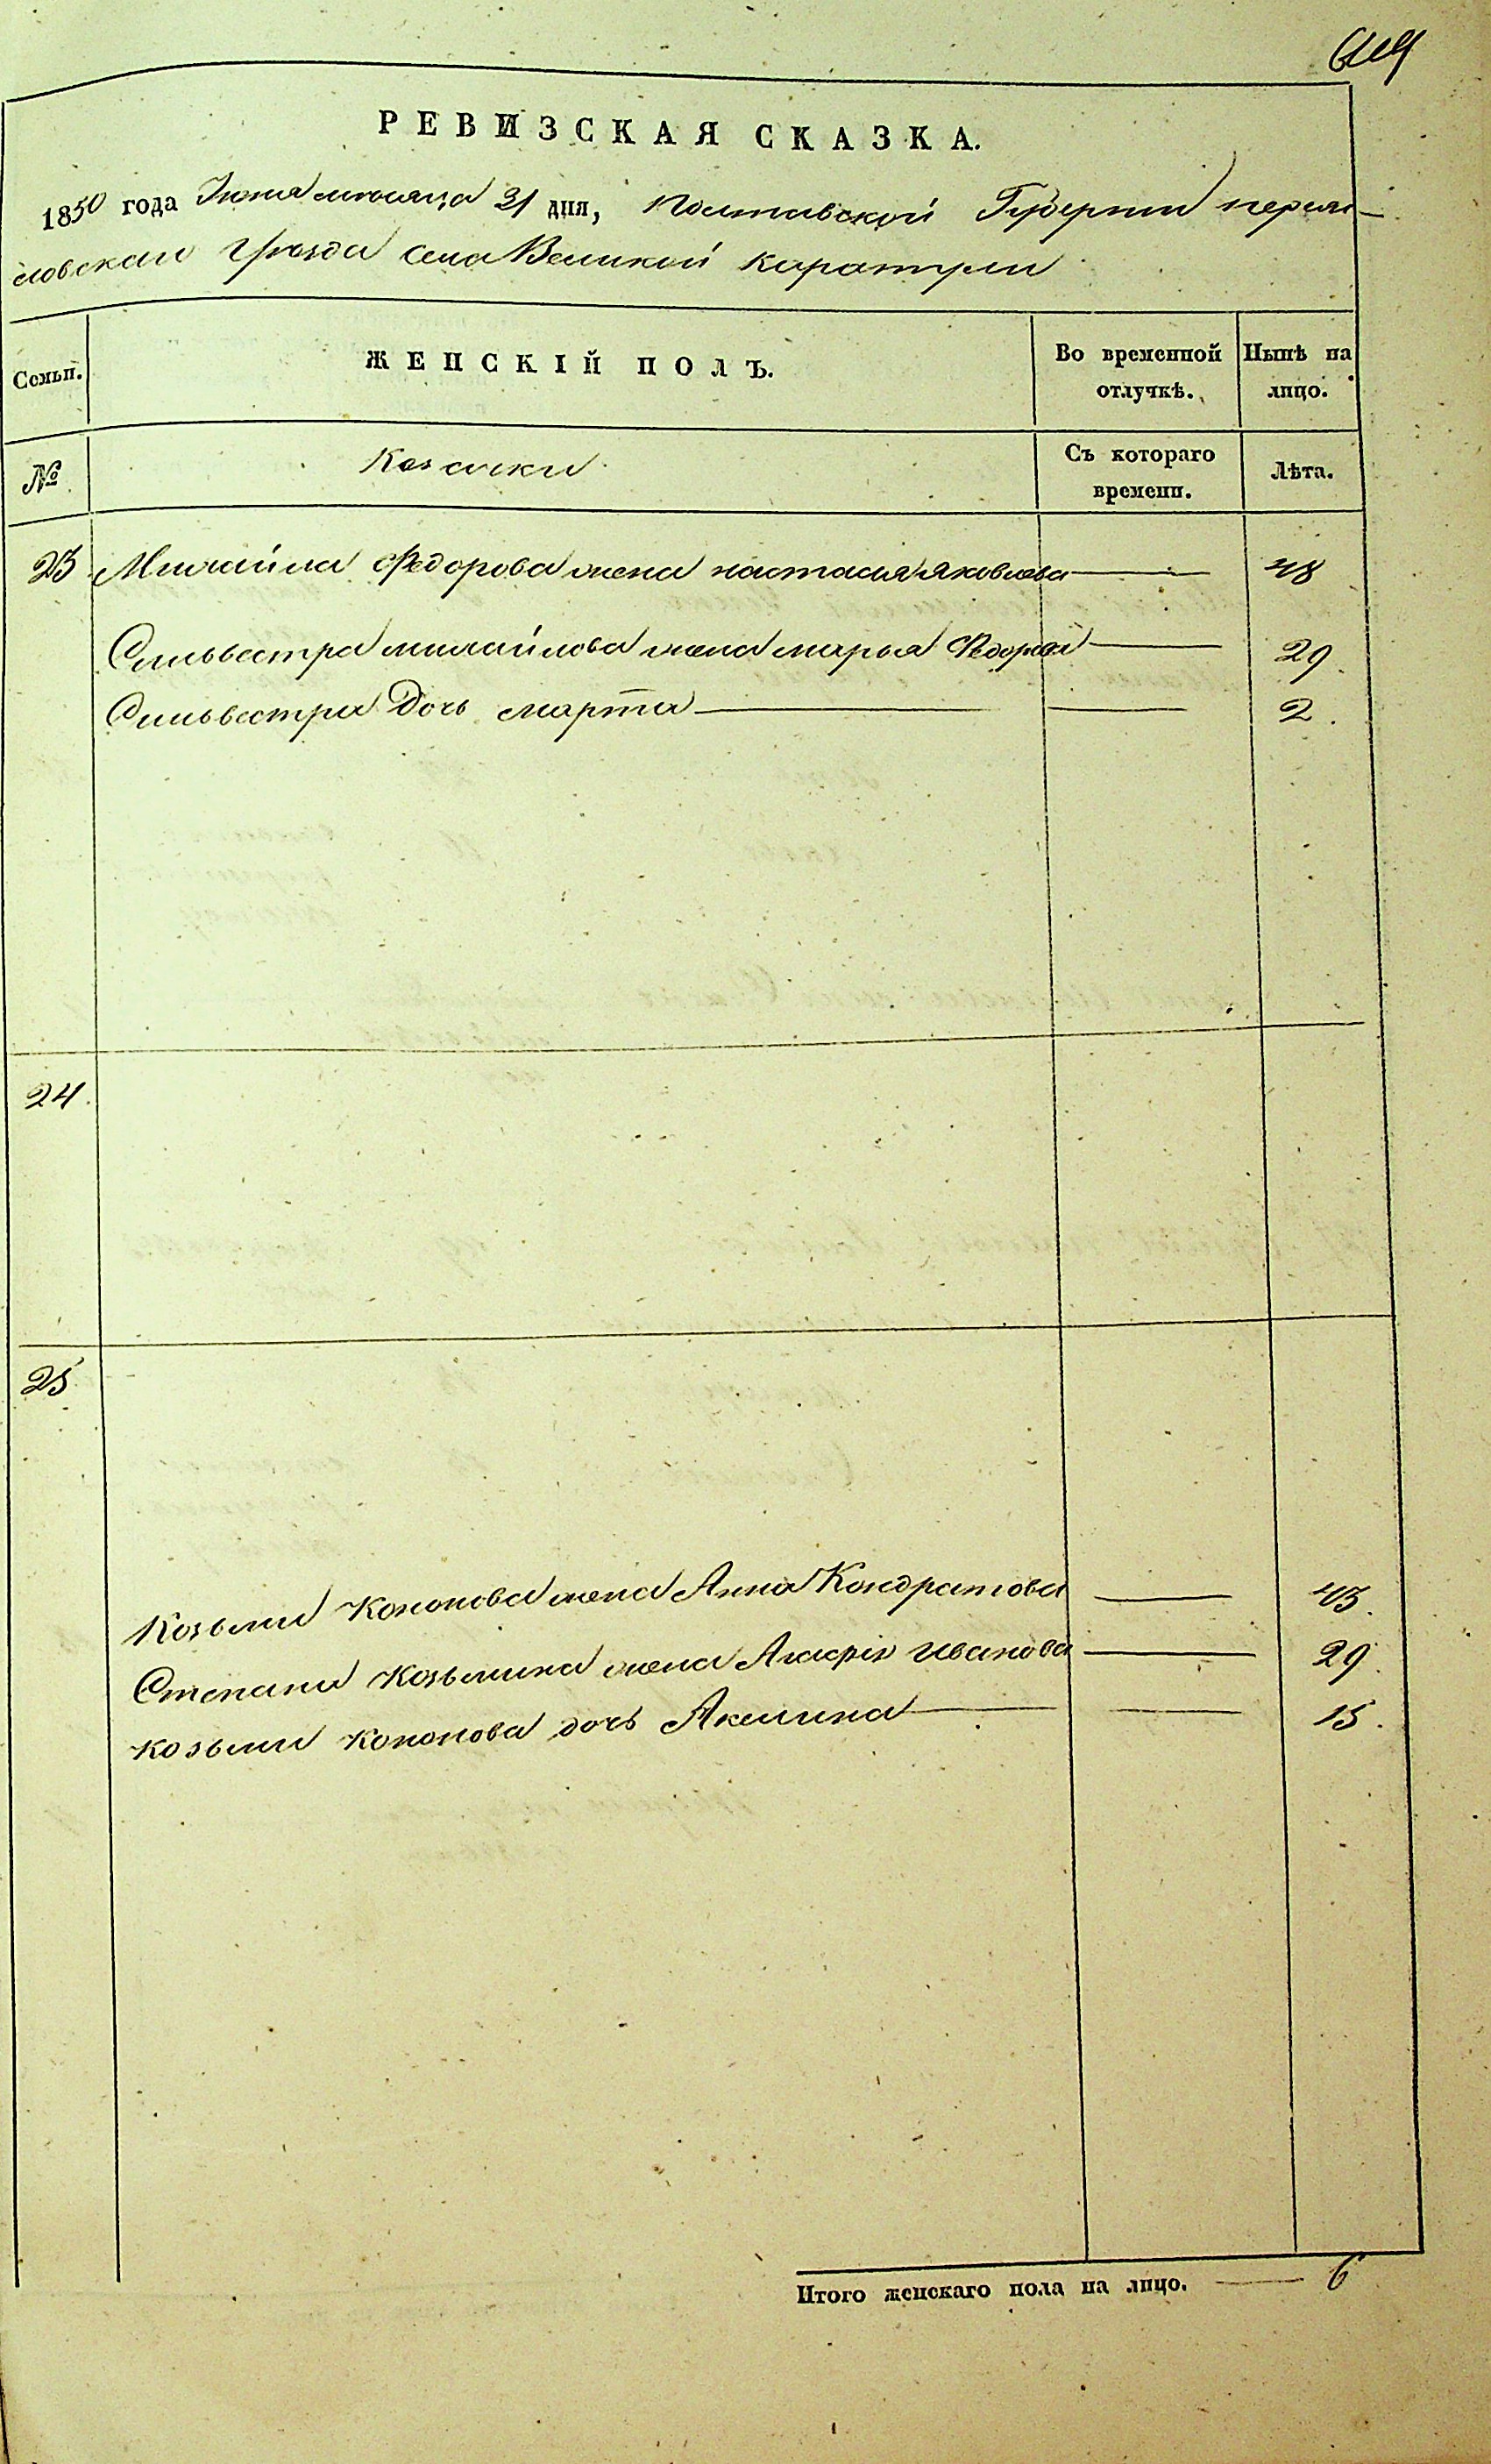 РЕВИЗСКАЯ СКАЗКА.
1850 года Июня месяца 31 дня, Полтавской Губернии переяс-
ловскаго уѣзда села Великой Каратули
Семьи. ЖЕНСКІЙ ПОЛЪ. Во временной отлучкѣ. Нынѣ на лицо.
№ Козачки Съ котораго времени. Лѣта.
23 Михайла Федорова жена настасья яковлева 48
Сильвестра михайлова жена марья Федорова 29
Сильвестра Дочь марта 2.
24.
25
Козьми Кононова жена Анна Кондратова 43.
Степана Козьмина жена Иванова 29.
Козьми Кононова дочь Акилина 15.
Итого женскаго пола на лицо. 6